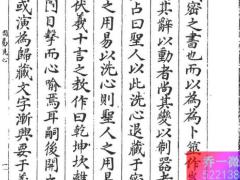 密之書也而以為為卜筮作
其辭以動者尚其變以制器者
占曰聖人以此洗心退藏于密
之用易以洗心則聖人之用易
伏羲十言之教作曰乾坤坎離
目擊而心喻焉耳嗣後開
或演為歸藏文字漸興要于
易洗心
一
乔一微
522138